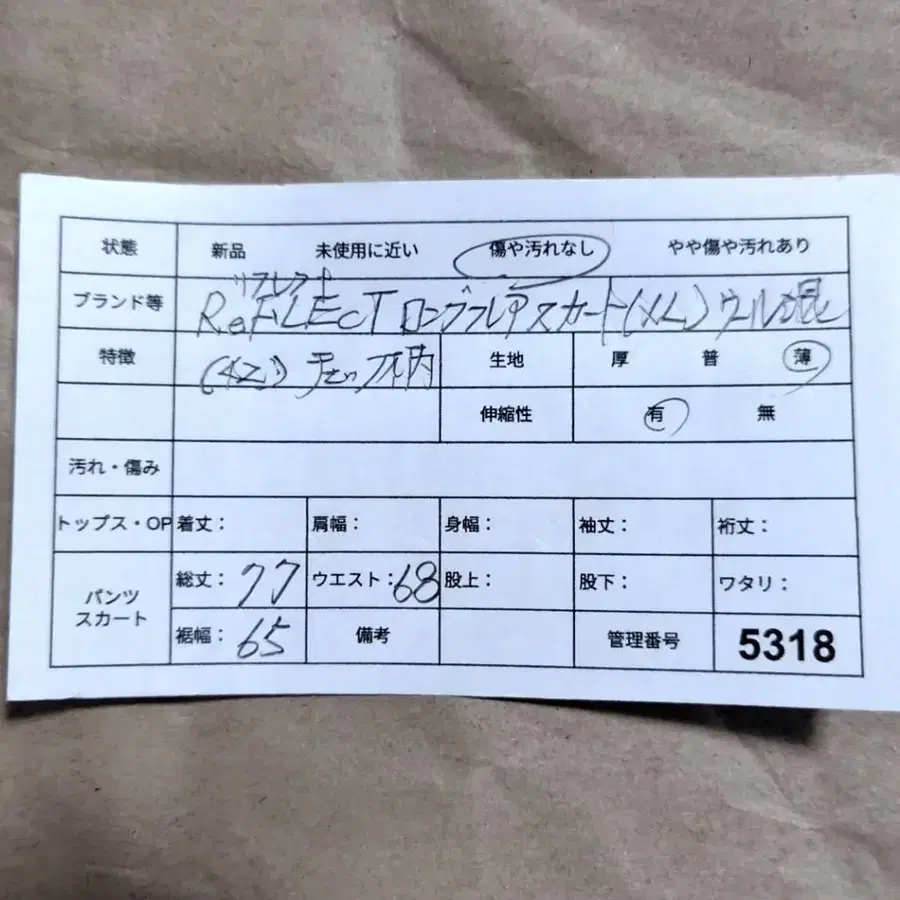 状態 新品 未使用に近い 傷や汚れなし やや傷や汚れあり
リフレクト
ブランド等 ReFLEcT ロングフレアスカート(XL)ウール混
特徴 (42) チェック柄 生地 厚 普 薄
伸縮性 有 無
汚れ・傷み
トップス・OP 着丈： 肩幅： 身幅： 袖丈： 裄丈：
パンツ スカート 総丈：77 ウエスト：68 股上： 股下： ワタリ：
裾幅：65 備考 管理番号 5318